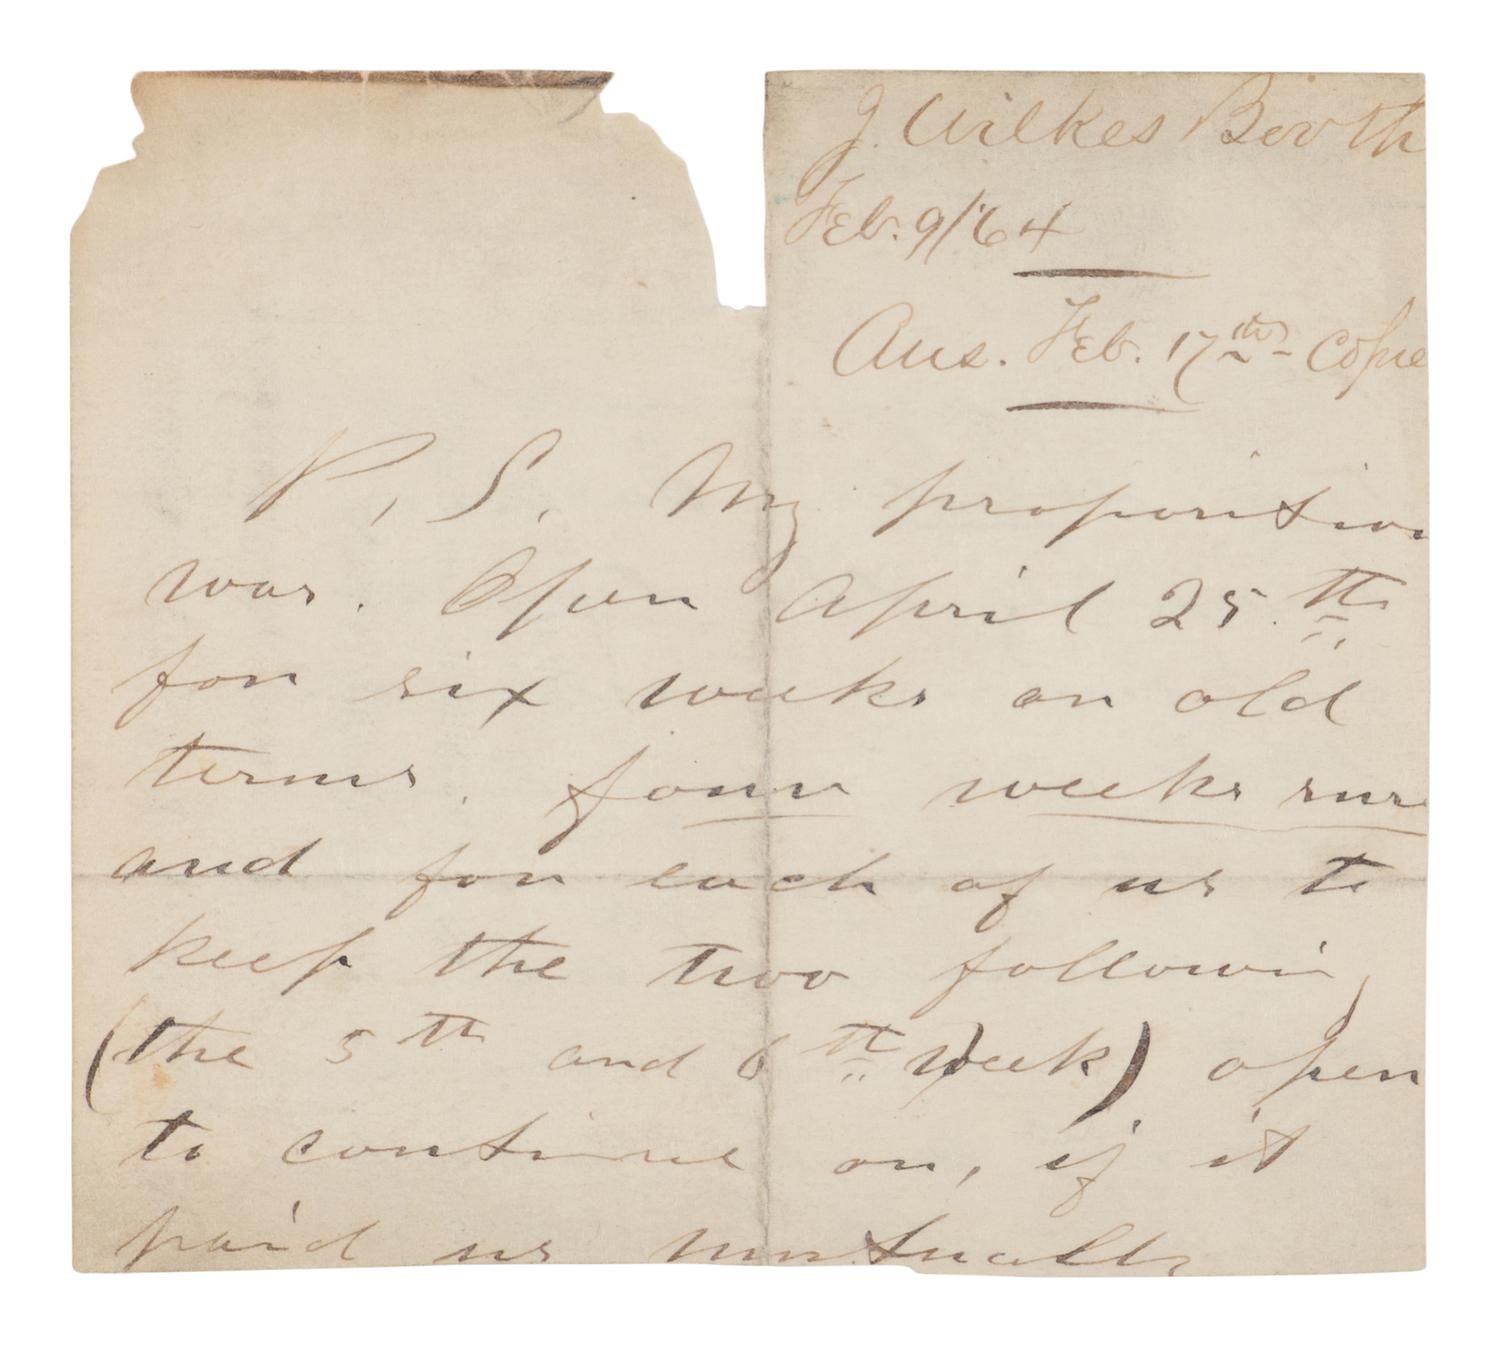 J. Wilkes Booth
Feb. 9/64
Ans. Feb. 17th - Copie
P. S. My proposition
was. Open April 25.th
for six weeks on old
terms. four weeks sure
and for each of us to
keep the two followin,
(the 5th and 6th week) open
to continue on, if it
paid us mutually